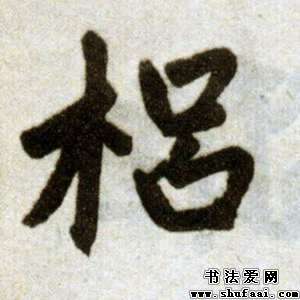 梠
书法爱网
www.shufaai.com